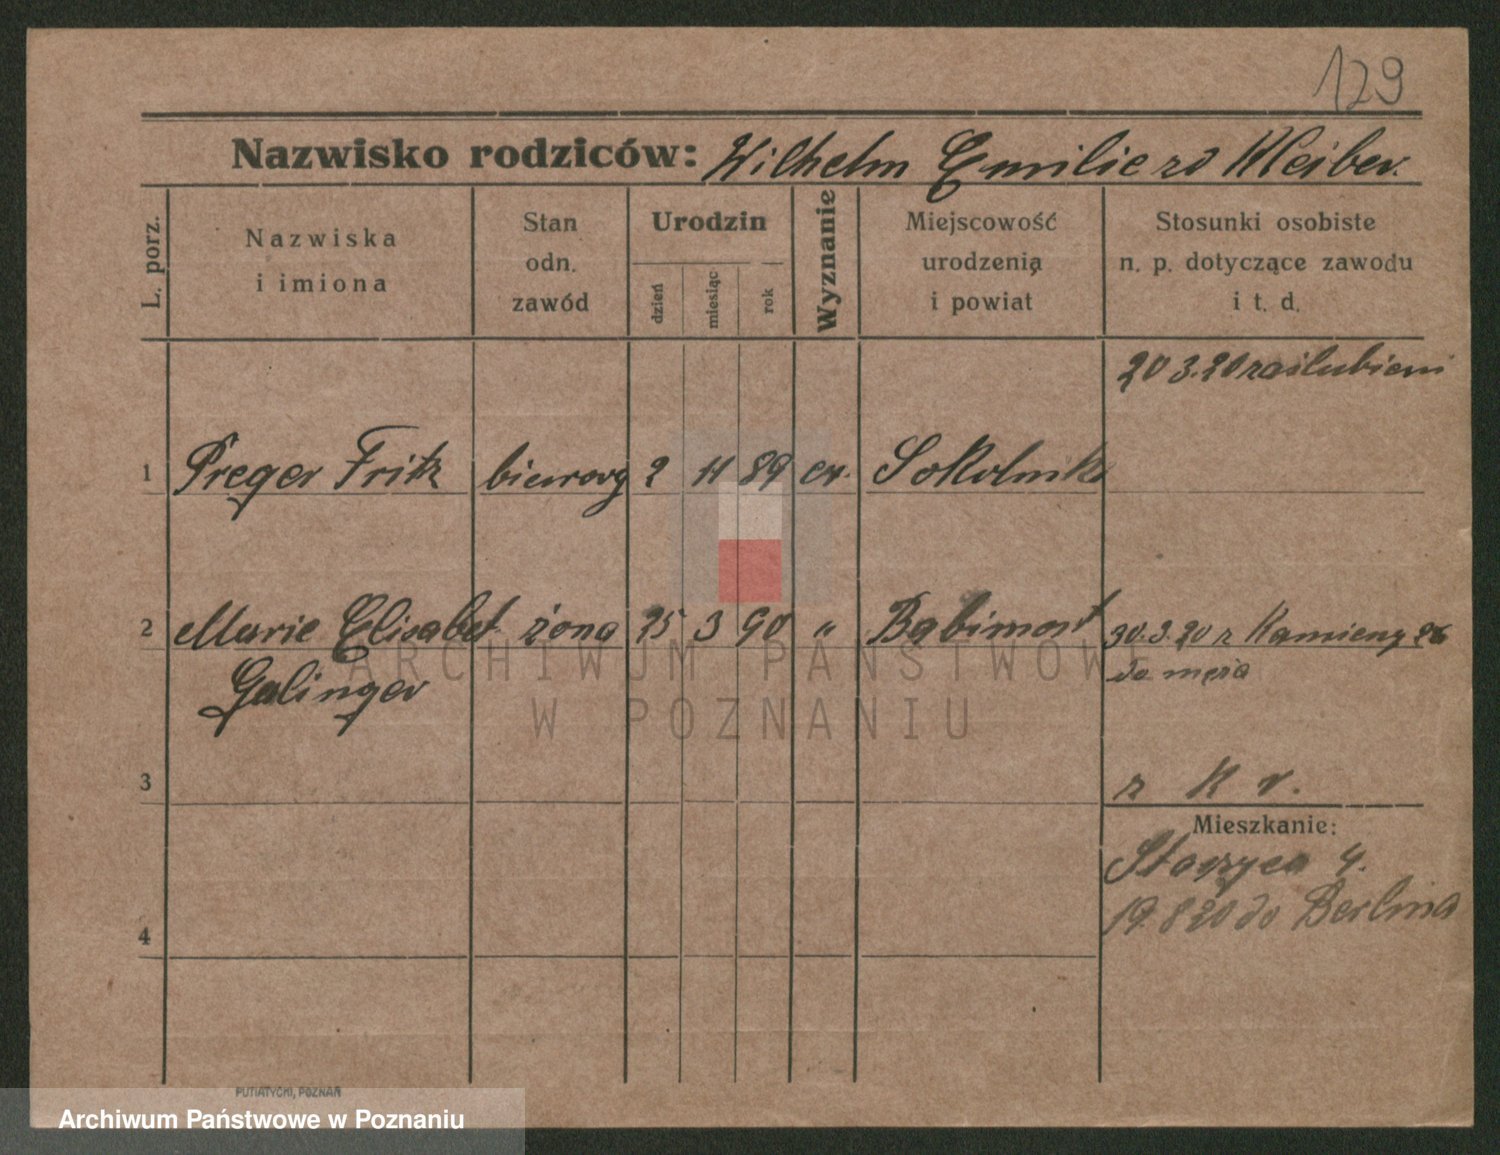 129
Nazwisko rodziców: Wilhelm Emilie zd Kleiber.
L. porz.
Nazwiska
i imiona
Stan
odn.
zawód
Urodzin
dzień
miesiąc
rok
Wyznanie
Miejscowość
urodzenia
i powiat
Stosunki osobiste
n. p. dotyczące zawodu
i t. d.
20 3.20 zaślubieni
1 Preger Fritz biurowy 2 11 89 ew. Sokolniki
2 Marie Elisabet żona 25 3 90 " Babimost 30.3.20 z Kamieny 26
Galinger do męża
3 z K r.
Mieszkanie:
4.
19.8 20 do Berlina
4
PUTIATYCKI, POZNAŃ
ARCHIWUM PAŃSTWOWE
W POZNANIU
Archiwum Państwowe w Poznaniu